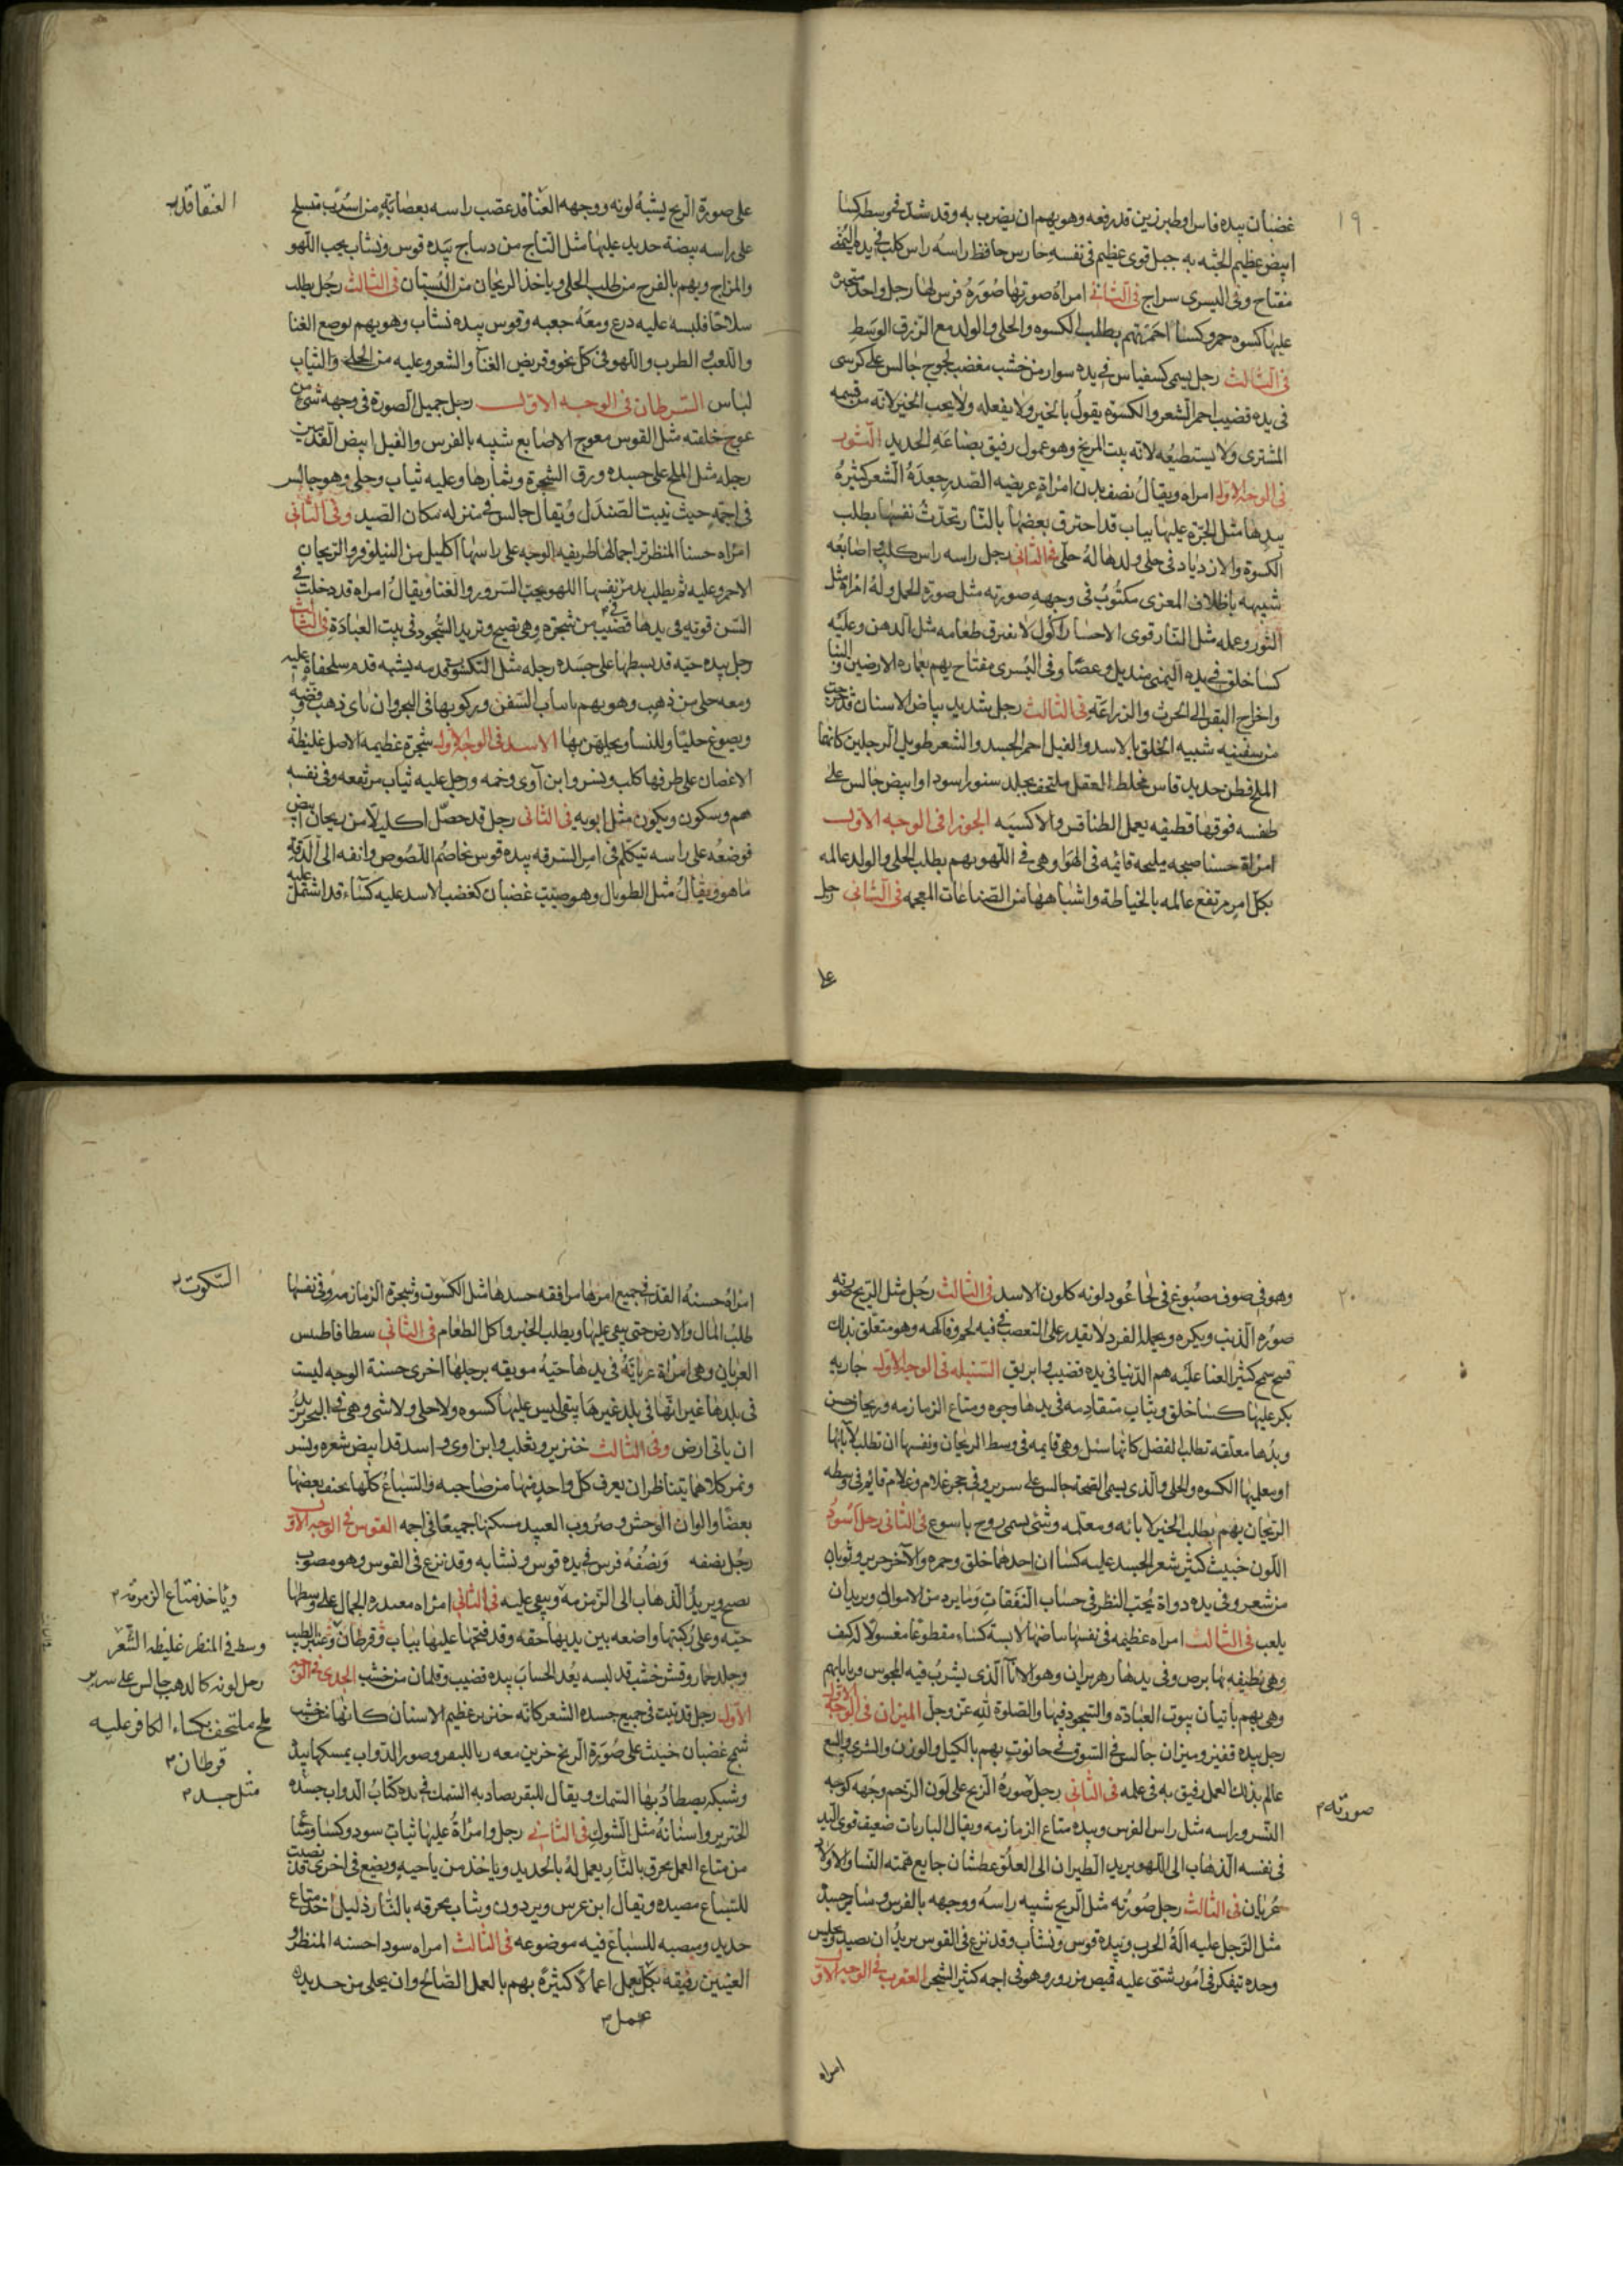 ١٩
غضبان بيده فاس او طبرزين قد رفعه وهو يهم ان يضرب به وقد شد في وسطه كسا
ابيض عظيم الجثه به جبل قوى عظيم فى نفسه حارس حافظ راسه راس كلب في يده اليمنى
مفتاح وفى اليسرى سراج فى الثانى امراة صورتها صورة فرس لها رجل واحد
عليها كسوه حمر وكسا احمر تهم بطلب الكسوه والحلى والولد مع الزرق الوسط
فى الثالث رجل يسمى كسفياس في يده سوار من خشب مغضب لجوج جالس على كرسى
فى يده قضيب احمر الشعر والكسوة يقول بالخير ولا يفعله ولا يحب الخير لانه من قسمه
المشترى ولا يستطيعه لانه بيت المريخ وهو عمول رفيق بضاعه الحديد الثور
فى الوجه الاول امراه ويقال نصف بدن امراة عريضه الصدر جعدة الشعر كثيرة
بيدها مثل الجرة عليها ثياب قد احترق بعضها بالنار تحدث نفسها بطلب
الكسوة والازدياد فى حلى ولدها له حلى فى الثانى رجل راسه راس كلب واصابعه
شبيهه باظلاف المعزى مكتوب فى وجهه صورته مثل صورة الحمل وله امراة مثل
الثور وعمله مثل النار قوى الاحسا راكول لا نفرق طعامه مثل الدهن وعليه
كسا خلق في يده اليمنى منديل وعصا وفى اليسرى مفتاح يهم بعماره الارضين والبنا
واخراج البقر الى الحرث والزراعة فى الثالث رجل شديد بياض الاسنان قد خرجت
من سفينه شبيه الخلق بالاسد والفيل احمر الجسد والشعر طويل الرجلين كانها
الملح فطن حديد قاس مختلط العقل ملتحف بجلد سنور اسود او ابيض جالس على
طفسه فوقها قطيفه يعمل الطنافس والاكسيه الجوزا فى الوجه الاول
امراة حسنا صبيحه مليحه قائمه فى الهوا وهى في اللهو يهم بطلب الحلى والولد عالمه
بكل امر مرتفع عالمه بالخياطة واشباهها من الصناعات المعجمه فى الثانى رجل
على
العنقا قد
على صورة الريح يشبه لونه ووجهه العنا قد عصب راسه بعصابة من اسرب متسلح
على راسه بيضة حديد عليها مثل التاج من دساج بيده قوس ونشاب يحب اللهو
والمزاح ويهم بالفرح من طلب الحلى وياخذ الريحان من البستان فى الثالث رجل يطلب
سلاحا فلبسه عليه درع ومعه جعبه وقوس بيده نشاب وهو يهم بوضع الغنا
واللعب الطرب واللهو فى كل نحو وقريض الغنا والشعر وعليه من الحلى والثياب
لباس السرطان فى الوجه الاول رجل جميل الصورة فى وجهه شئ من
عوج خلقته مثل القوس معوج الاصابع شبيه بالفرس والفيل ابيض القدمين
رجله مثل الملح على جسده ورق الشجرة وثمارها وعليه ثياب وحلى وهو جالس
فى اجمه حيث تنبت الصندل ويقال جالس في منزله مكان الصيد وفى الثانى
امراه حسنا المنظر تر اجمالها ظريفه الوجه على راسها اكليل من النيلوفر والريحان
الاحمر وعليه ثم يطلب يد من نفسها اللهو يحب السرور والغنا ويقال امراه قد دخلت في
السن قوته فى يدها قضيب من شجرة وهى تصيح وتريد السجود فى بيت العبادة فى الثالث
رجل بيده حيه قد بسطها على جسده رجله مثل التكسو تقدمه يشبه قدم سلحفاة عليه
ومعه حلى من ذهب وهو يهم باسباب السفن وركوبها فى البحر وان ياى ذهب وفضة
ويصوغ حليا وللنسا ويجلهن بها الاسد فى الوجه الاول شجرة عظيمه الاصل غليظة
الاغصان على طرفها كلب ونسر وابن آوى وخمه ورجل عليه ثياب مرتفعه وفى نفسه
هم وسكون ويكون مثل ابويه فى الثانى رجل قد حصل اكليلا من ريحان ابيض
فوضعه على راسه تيكلم فى امر السرقه بيده قوس يخاصم اللصوص وانفه الى الدقة
ما هو ويقال مثل الطوبال وهو صنيت غضبان كغضب الاسد عليه كساء قد اشتمل عليه
٢٠
وهو فى صوف مصبوغ فى لحا عود لونه كلون الاسد فى الثالث رجل مثل الريح صورته
صورة الذيب ويكره ويحمله الفرد لا يقدر على التعصب في فيه لحم وفاكهه وهو متعلق بذلك
قبيح سمج كثير العنا عليه هم الدنيا فى يده قضيب وابريق السنبله فى الوجه الاول جاريه
بكر عليها كسا خلق وثياب متقادمه فى يدها وجوه ومتاع الزمازمه وريحان حسن
ويدها معلقه تطلب الفضل كانها سئل وهى قايمه فى وسط الريحان ونفسها ان تطلب لآبائها
او بعلتها الكسوه والحلى والذى يسمى الضحه جالس على سرير وفى حجر غلام وغلام قائم فى وسطه
الريحان يهم بطلب الخير لابائه ومعلمه وشئ يسمى روح باسوع فى الثانى رجل اسود
اللون خبيث كثير شعر الجسد عليه كسا ان احدهما خلق وحمره والآخر حرير وثوبان
من شعر وفى يده دواة يحب النظر فى حساب النفقات وما يرد من الاموال ويريد ان
يلعب فى الثالث امراه عظيمه فى نفسها بياضها لابسة كساء مقطوعا مغسولا الكف
وهى نظيفه بها برص وفى يدها رهربران وهو الانآ الذى يشرب فيه المجوس
وهى يهم باتيان بيوت العبادة والسجود فيها والصلوة لله عز وجل الميزان فى الوجه الاول
رجل بيده قفيز وميزان جالس في السوق في حانوت يهم بالكيل والوزن والشرى والبيع
عالم بذلك العمل رفيق به فى عمله فى الثانى رجل صورة الريح على لون الرخم وجهه كوجه
النسر وراسه مثل راس الفرس وبيده متاع الزمازمه ويقال الباريات ضعيف قوى اليد
فى نفسه الذهاب الى اللهو يريد الطيران الى العلو عطشان جايع همته النسا والاولاد
عريان فى الثالث رجل صورته مثل الريح شبيه راسه ووجهه بالفرس وسايرجسده
مثل الرجل عليه الة الحرب وبيده قوس ونشاب وقد نزع فى القوس يريد ان يصيد وجلس
وحده تيفكر فى امور شتى عليه قميص مزرور وهو فى اجمه كثير الشجر العقرب فى الوجه الاول
صورته
امراه
السكوت
امراة حسنة القد في جميع امرها مرافقه جسدها مثل الكسوت وشجرة الزمازمه وفى نفسها
طلب المال والارض حتى يبقى عليها ويطلب الخير واكل الطعام فى الثانى سطافاطس
العريان وهى امراة عريانة فى يدها حية موبقه برجلها اخرى حسنة الوجه ليست
فى بلدها غير انها فى بلد غيرها يبقى ليس عليها كسوه ولا حلى ولا شى وهى فى البحر يريد
ان ياتى ارض وفى الثالث خنزير وثعلب وابن اوى واسد قد ابيض شعره ونسر
ونمر كلاهما يتناظران يعرف كل واحد منها من صاحبه والسباع كلها يخنف بعضها
بعضا والوان الوحش وضروب العبيد مسكنها جميعا فى اجه القوس في الوجه الاول
رجل نصفه ونصفه فرس في يده قوس ونشابه وقد نزع فى القوس وهو مصوب
نصيح ويريد الذهاب الى الزمزمه ويبقى عليه فى الثانى امراه معبده الجمال على وسطها
حبه وعلى ركبتها واضعه بين يديها حقه وقد فتحتها عليها ثياب وقرطان وعنبر الطيب
وجلد حمار وقش خشب قد لبسه بعد الحساب بيده قضيب وقلمان من خشب الجدى فى الوجه
الاول رجل قد نبت فى جميع جسده الشعر كانه خنزير عظيم الاسنان كانها خشب
سمج غضبان خبيث على صورة الريح حزين معه رباللبقر وصور الدواب يمسكها بيده
وشبكه يصطاد بها السمك ويقال للبقر يصاد به السمك في يده كتاب الدواب جسده
الخنزير واسنانه مثل الشوك فى الثانى رجل وامراة عليها ثياب سود وكسا
من متاع العمل يحرق بالنار يعمل له بالحديد وياخذ من ياحيه ويضع فى اخرى قد نصبت
للسباع مصيده ويقال ابن عرس وبردون وثياب يحرقه بالنار ذليل اخذ متاع
حديد وينصبه للسباع فيه موضوعه فى الثالث امراه سودا حسنه المنظر و
العينين رفيقه بكل يعمل اعمالا كثيرة يهم بالعمل الصالح وان يحلى من حديده
عمل
وياخذ متاع الزمزمه
وسط فى المنظر غليظه الشعر
رجل لونه كالذهب جالس على سرير
ملح ملتحف بكساء الكافر عليه
قرطان
مثل جسد